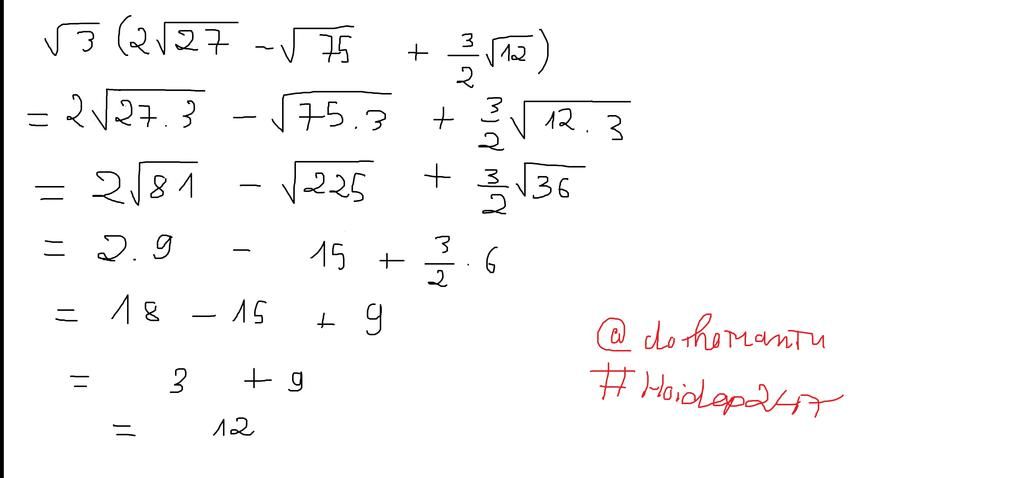 √3 (2√27 - √75 + 3/2 √12)
= 2√27.3 - √75.3 + 3/2 √12.3
= 2√81 - √225 + 3/2 √36
= 2.9 - 15 + 3/2 . 6
= 18 - 15 + 9
= 3 + 9
= 12
@dothomantu
#Hoidap247